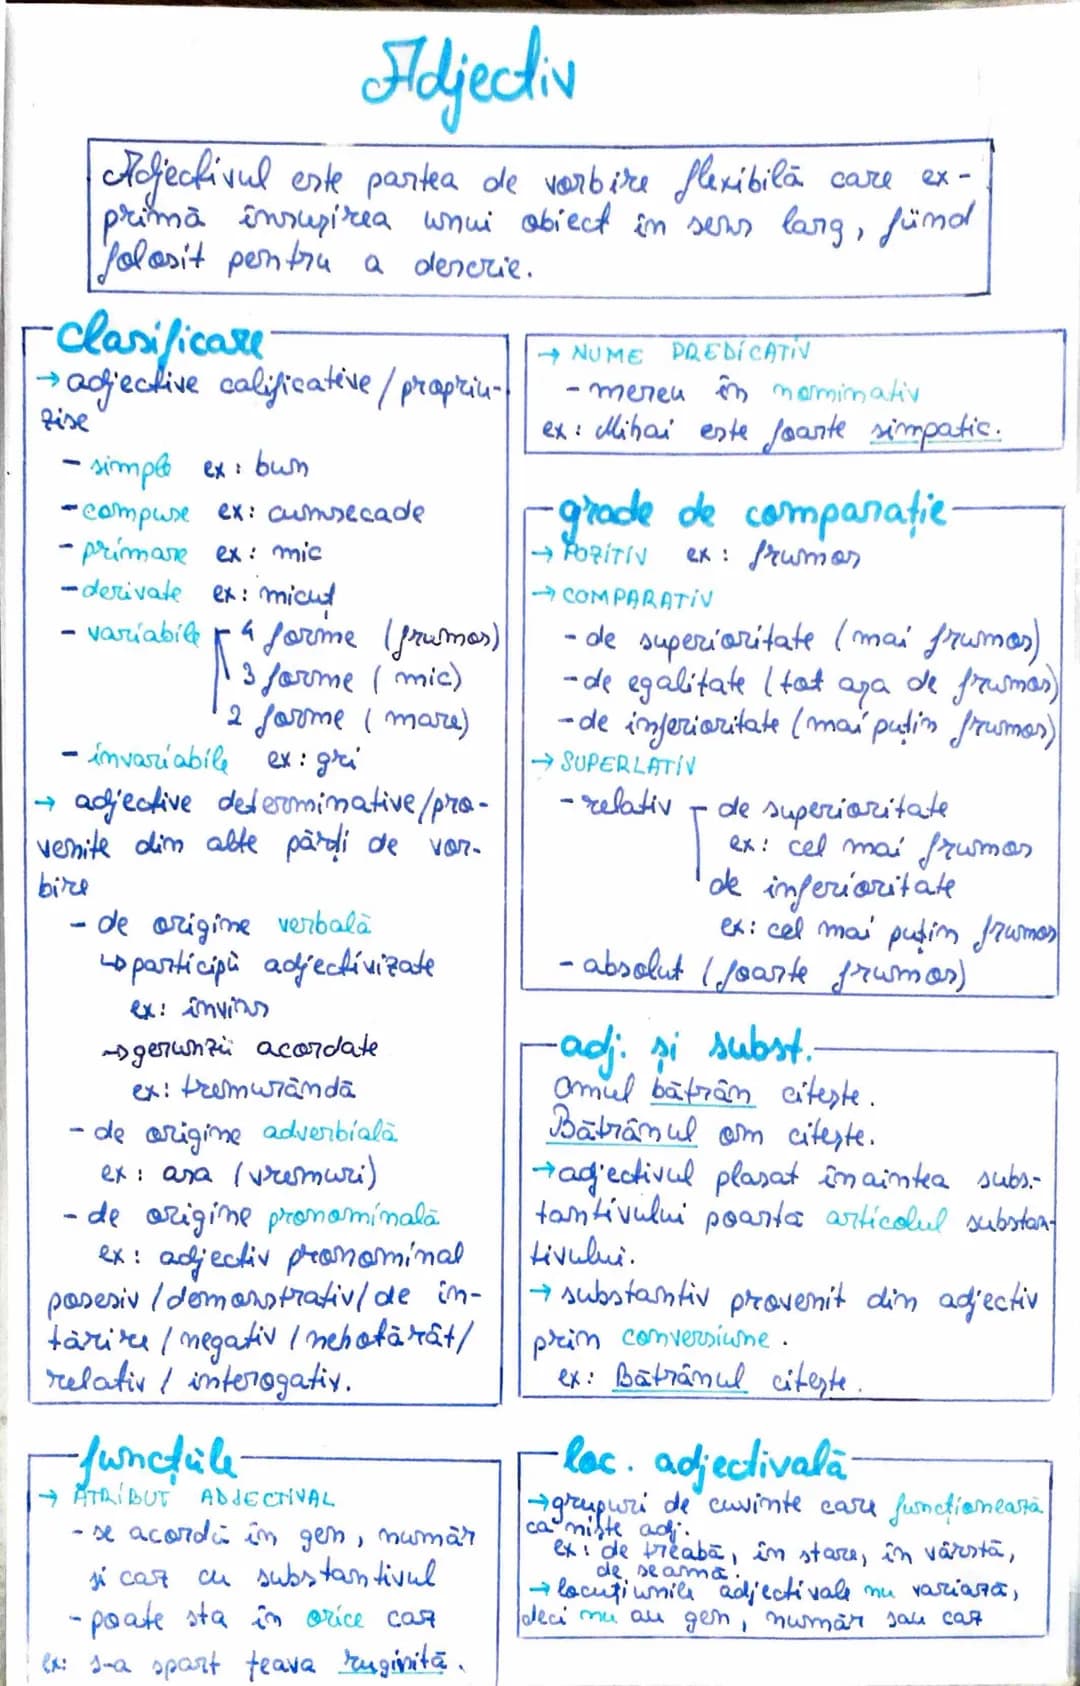 Adjectiv
Adjectivul este partea de vorbire flexibilă care ex-
primă însușirea unui obiect în sens larg, fiind
folosit pentru a descrie.
clasificare
→ adjective calificative / propriu-
zise
- simple ex: bun
- compuse ex: cumsecade
- primare ex: mic
- derivate ex: micuț
- variabile 4 forme (frumos)
3 forme (mic)
2 forme (mare)
- invariabile ex: gri
→ adjective determinative/pro-
venite din alte părți de vor-
bire
- de origine verbală
↳ participii adjectivizate
ex: învins
→ gerunzii acordate
ex: tremurândă
- de origine adverbială
ex: așa (vremuri)
- de origine pronominală
ex: adjectiv pronominal
posesiv / demonstrativ / de în-
tărire / negativ / nehotărât /
relativ / interogativ.
funcțiile
→ ATRIBUT ADJECTIVAL
- se acordă în gen, număr
și caz cu substantivul
- poate sta în orice caz
ex: s-a spart țeava ruginită.
→ NUME PREDICATIV
- mereu în nominativ
ex: Mihai este foarte simpatic.
grade de comparație
→ POZITIV ex: frumos
→ COMPARATIV
- de superioritate (mai frumos)
- de egalitate (tot așa de frumos)
- de inferioritate (mai puțin frumos)
→ SUPERLATIV
- relativ de superioritate
ex: cel mai frumos
de inferioritate
ex: cel mai puțin frumos
- absolut (foarte frumos)
adj. și subst.
Omul bătrân citește.
Bătrânul om citește.
→ adjectivul plasat înaintea subs-
tantivului poartă articolul substan-
tivului.
→ substantiv provenit din adjectiv
prin conversiune.
ex: Bătrânul citește.
loc. adjectivală
→ grupuri de cuvinte care funcționează
ca niște adj.
ex: de treabă, în stare, în vârstă,
de seamă.
→ locuțiunile adjectivale nu variază,
deci nu au gen, număr sau caz